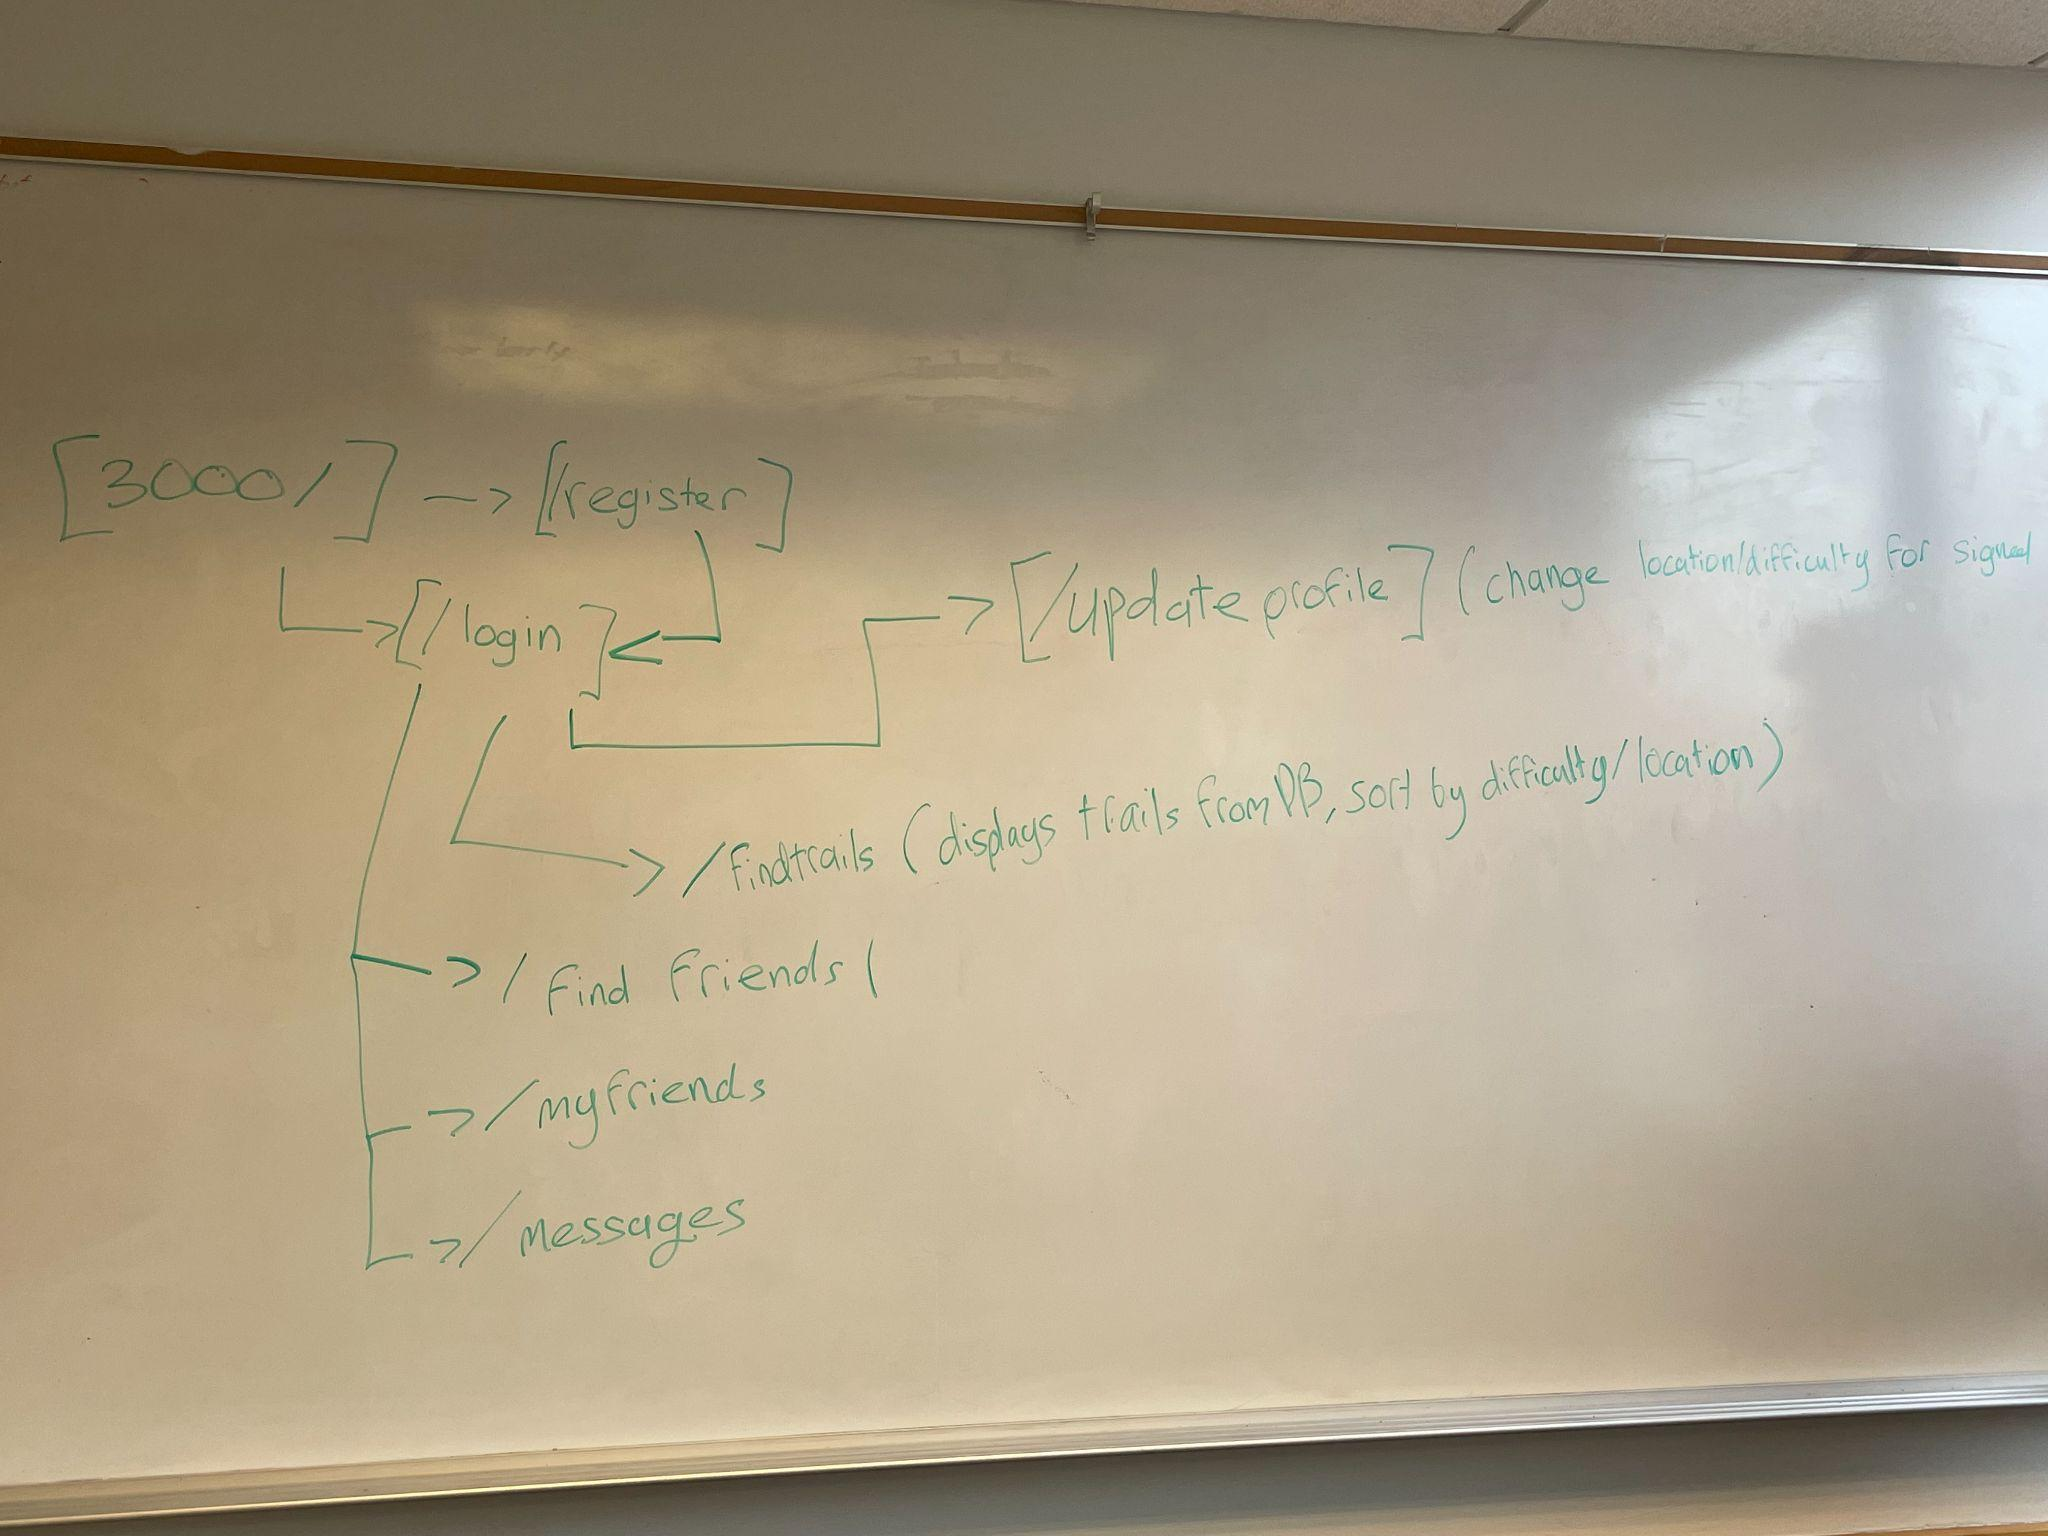 [3000/] -> [/register]
[/login]
-> [/updateprofile] (change location/difficulty for signed
-> /findtrails (displays trails from DB, sort by difficulty/location)
-> / find friends (
-> /myfriends
-> /messages